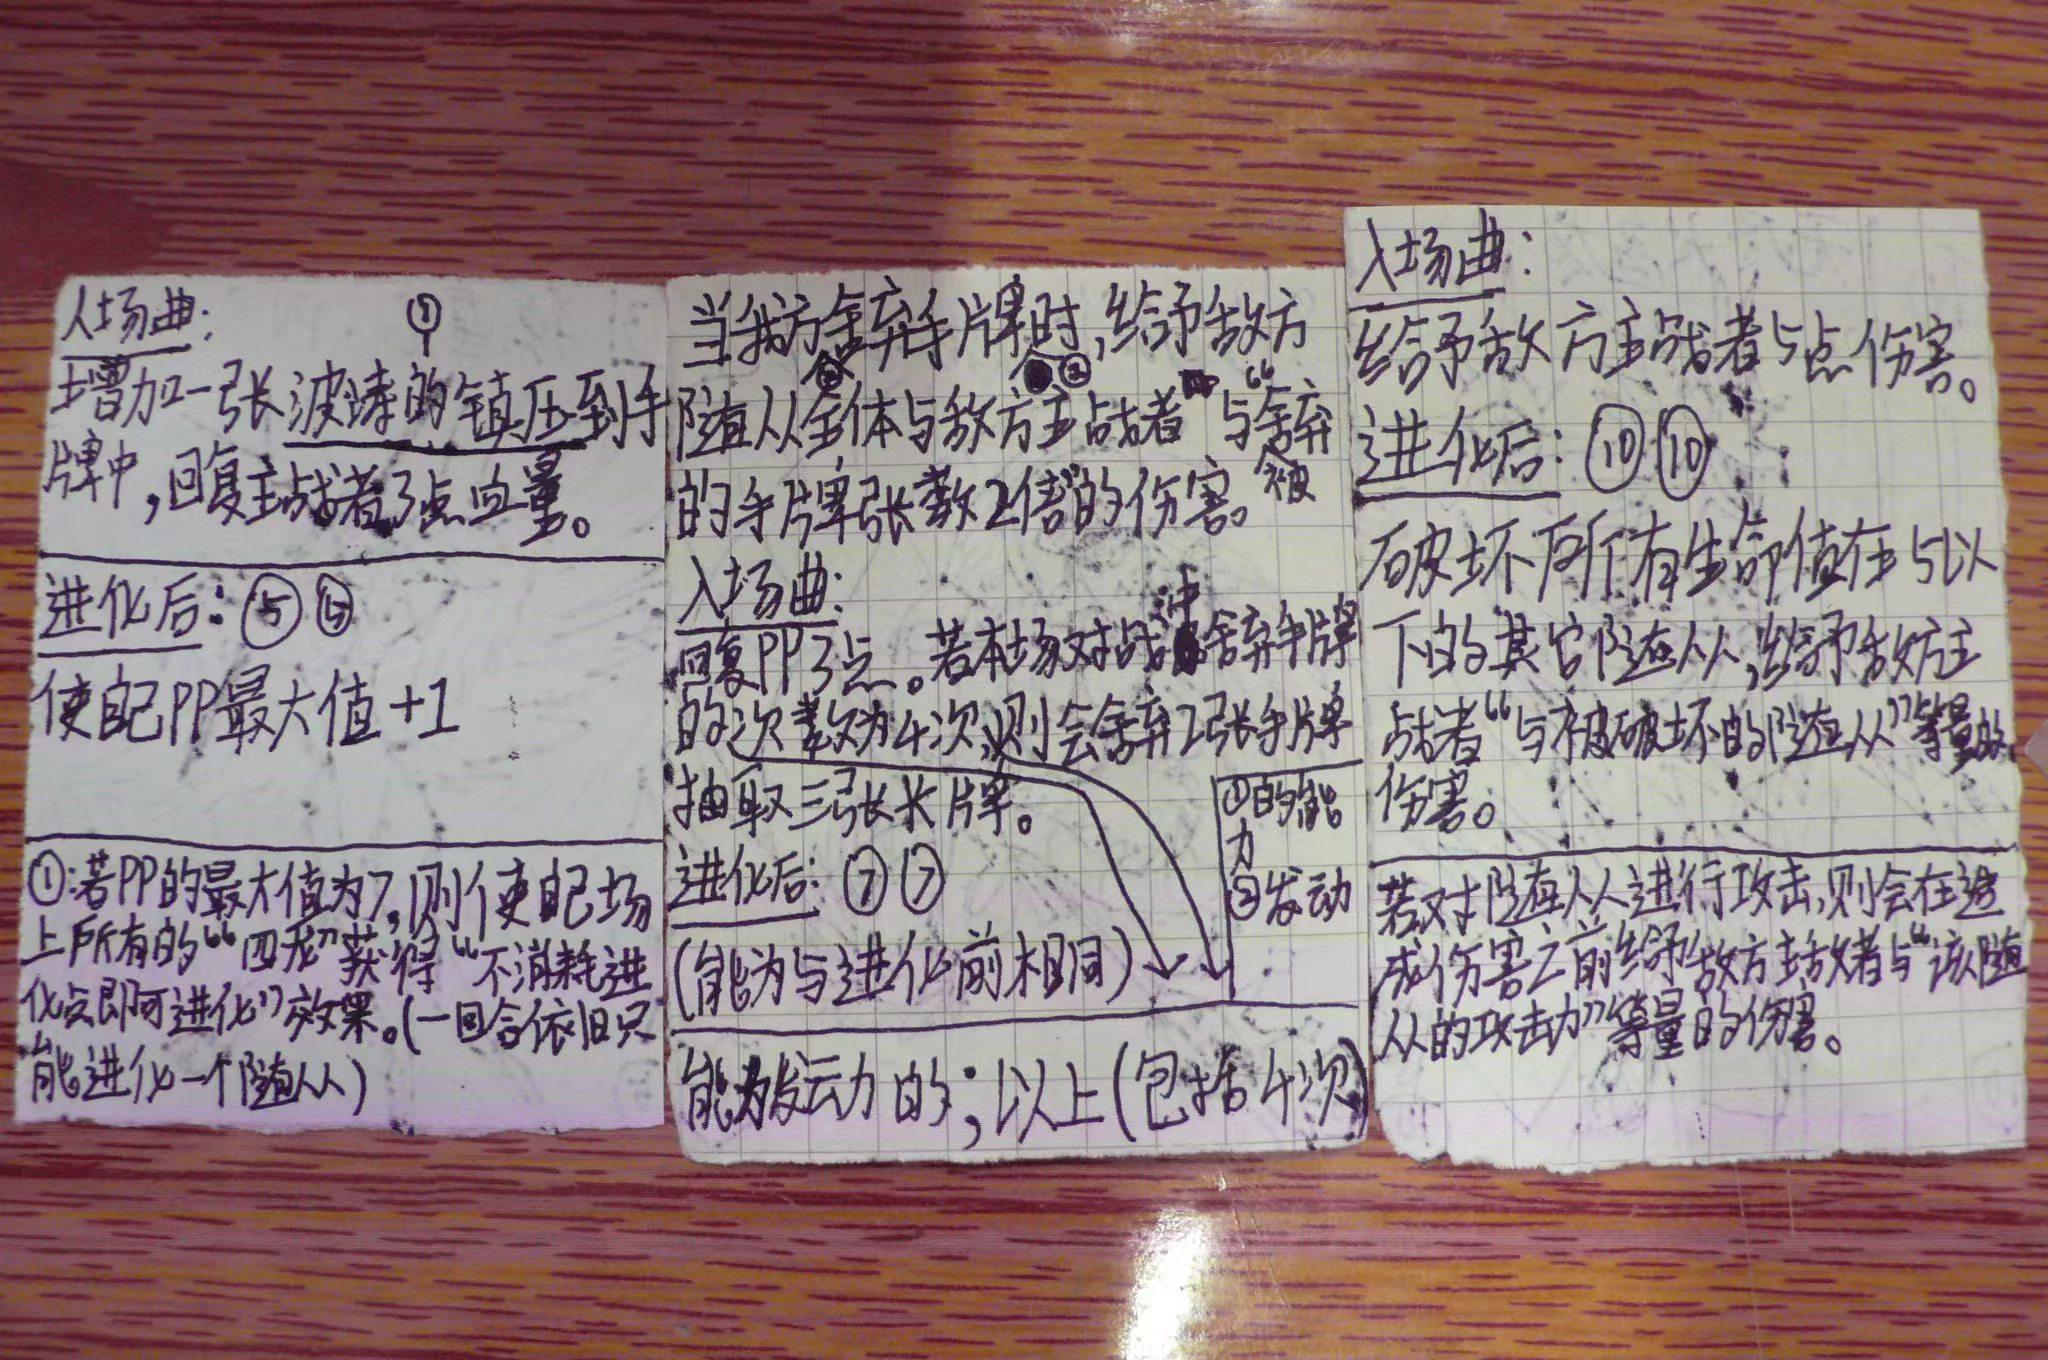 入场曲:
①
增加一张波涛的镇压到手
牌中,回复主战者3点血量。
进化后:⑤
使自己PP最大值+1
①:若PP的最大值为7,则使自己场
上所有的“四龙”获得“不消耗进
化点即可进化”效果。(一回合依旧只
能进化一个随从)
当我方舍弃手牌时,给予敌方
②
随从全体与敌方主战者“与舍弃
的手牌张数2倍”的伤害。被
入场曲:
回复PP3点。若本场对战中舍弃手牌
的次数为4次,则会舍弃2张手牌
抽取三张长牌。
①的能
力
②发动
进化后:⑦⑦
(能力与进化前相同)
能力发动的;以上(包括4次)
入场曲:
给予敌方主战者5点伤害。
进化后:⑩⑩
破坏所有生命值在5以
下的其它随从,给予敌方主
战者“与被破坏的随从”等量的
伤害。
若对随从进行攻击,则会在造
成伤害之前给予敌方主战者与“该随
从的攻击力”等量的伤害。